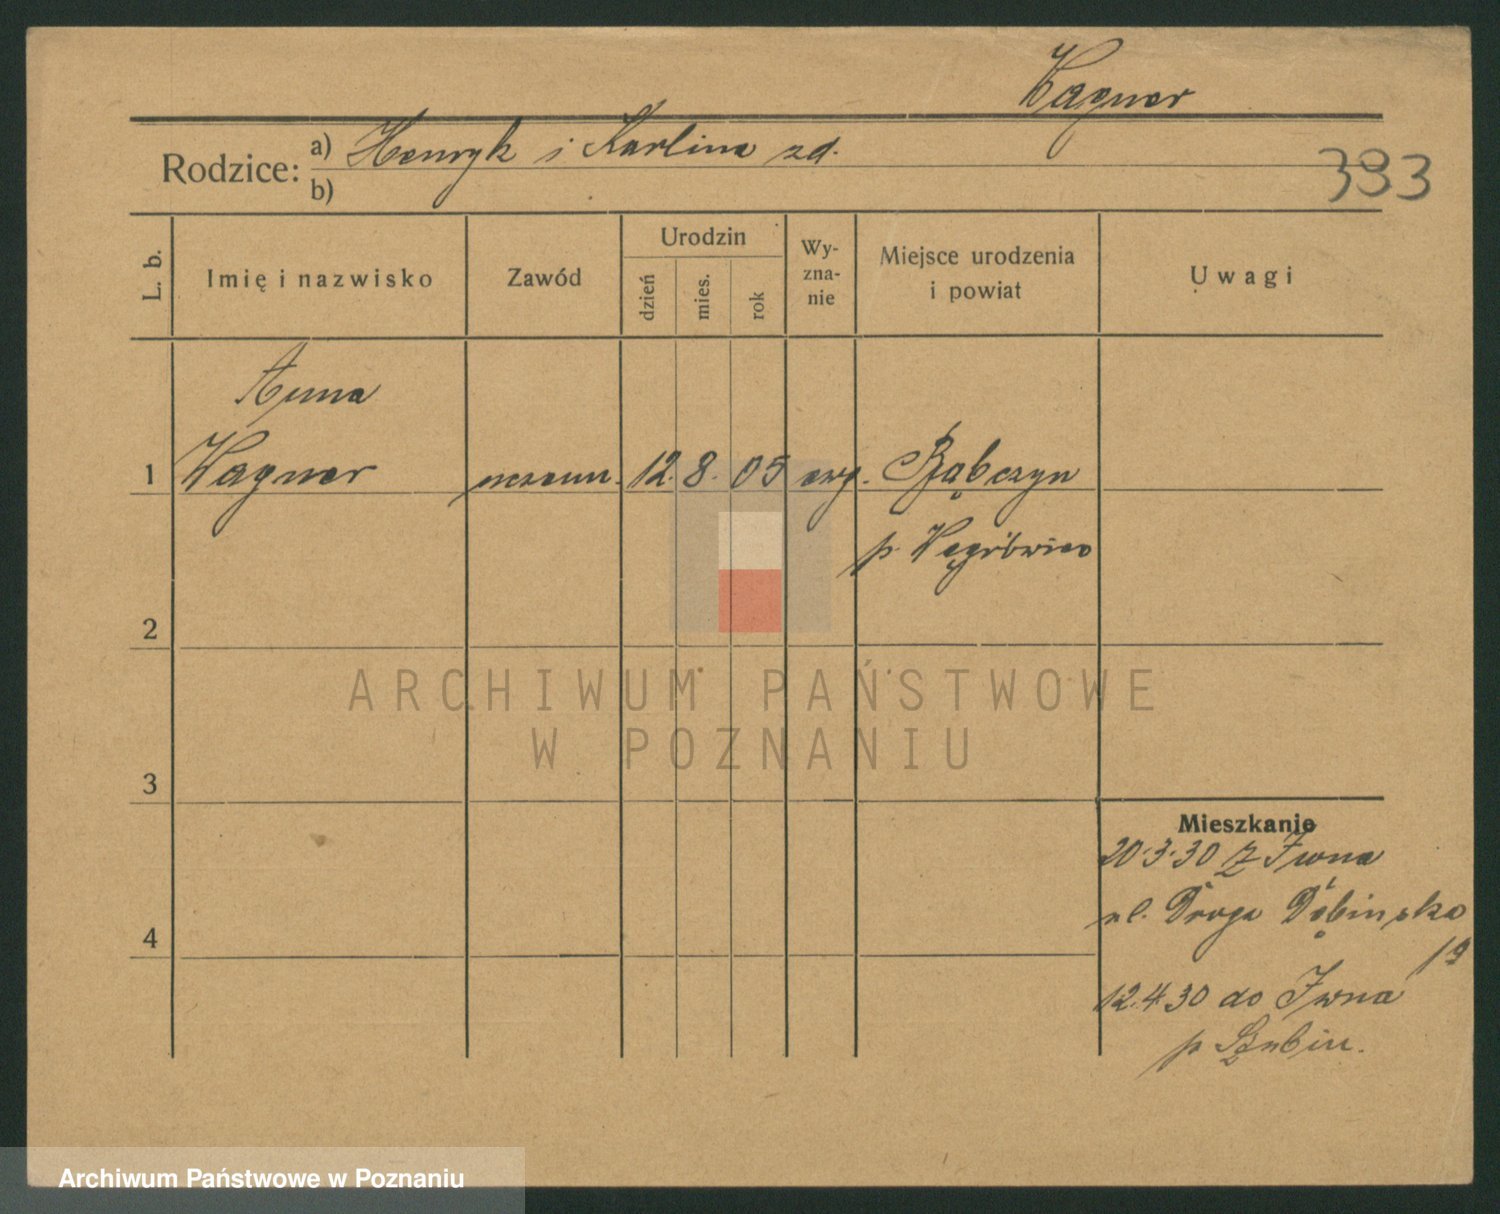 Wagner
Rodzice: a) Henryk i Karlina zd.
b)
393
L. b.
Imię i nazwisko
Zawód
Urodzin
dzień
mies.
rok
Wy-
zna-
nie
Miejsce urodzenia
i powiat
Uwagi
Anna
1 Wagner uczenn. 12. 8. 05 ewg. Rąbczyn
p. Wągrówiec
2
3
4
Mieszkanie
20.3.30 z Iwna
ul. Droga Dębinska
19
12.4.30 do Iwna
p Szubin.
ARCHIWUM PAŃSTWOWE
W POZNANIU
Archiwum Państwowe w Poznaniu